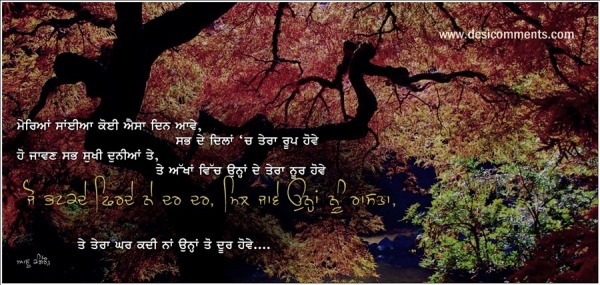 www.desicomments.com
ਮੇਰਿਆਂ ਸਾਂਈਆ ਕੋਈ ਐਸਾ ਦਿਨ ਆਵੇ,
ਸਭ ਦੇ ਦਿਲਾਂ 'ਚ ਤੇਰਾ ਰੂਪ ਹੋਵੇ
ਹੋ ਜਾਵਣ ਸਭ ਸੁਖੀ ਦੁਨੀਆਂ ਤੇ,
ਤੇ ਅੱਖਾਂ ਵਿੱਚ ਉਨ੍ਹਾਂ ਦੇ ਤੇਰਾ ਨੂਰ ਹੋਵੇ
ਜੋ ਭਟਕਦੇ ਫਿਰਦੇ ਨੇ ਦਰ ਦਰ, ਮਿਲ ਜਾਵੇ ਉਨ੍ਹਾਂ ਨੂੰ ਰਾਸਤਾ,
ਤੇ ਤੇਰਾ ਘਰ ਕਦੀ ਨਾਂ ਉਨ੍ਹਾਂ ਤੋ ਦੂਰ ਹੋਵੇ....